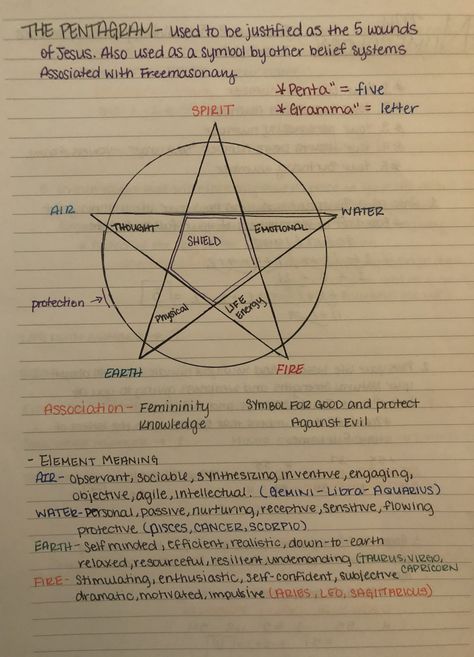 THE PENTAGRAM- used to be justified as the 5 wounds
of Jesus. Also used as a symbol by other belief systems
Assosiated with Freemasonary
*Penta" = five
*Gramma" = letter
SPIRIT
AIR
WATER
THOUGHT
EMOTIONAL
SHIELD
protection →
Physical
LIFE
Energy
EARTH
FIRE
Association - Femininity
Knowledge
SYMBOL FOR GOOD and protect
Against Evil
- ELEMENT MEANING
AIR- observant, sociable, synthesizing inventive, engaging,
objective, agile, intellectual. (GEMINI-Libra-AQUARIUS)
WATER-Personal, passive, nurturing, receptive, sensitive, flowing
protective (PISCES, CANCER, SCORPIO)
EARTH- Self minded, efficient, realistic, down-to-earth
relaxed, resourceful, resilient, undemanding (TAURUS, VIRGO,
CAPRICORN
FIRE- Stimulating, enthusiastic, self-confident, subjective
dramatic, motivated, impulsive (ARIES, LEO, SAGITTARIUS)